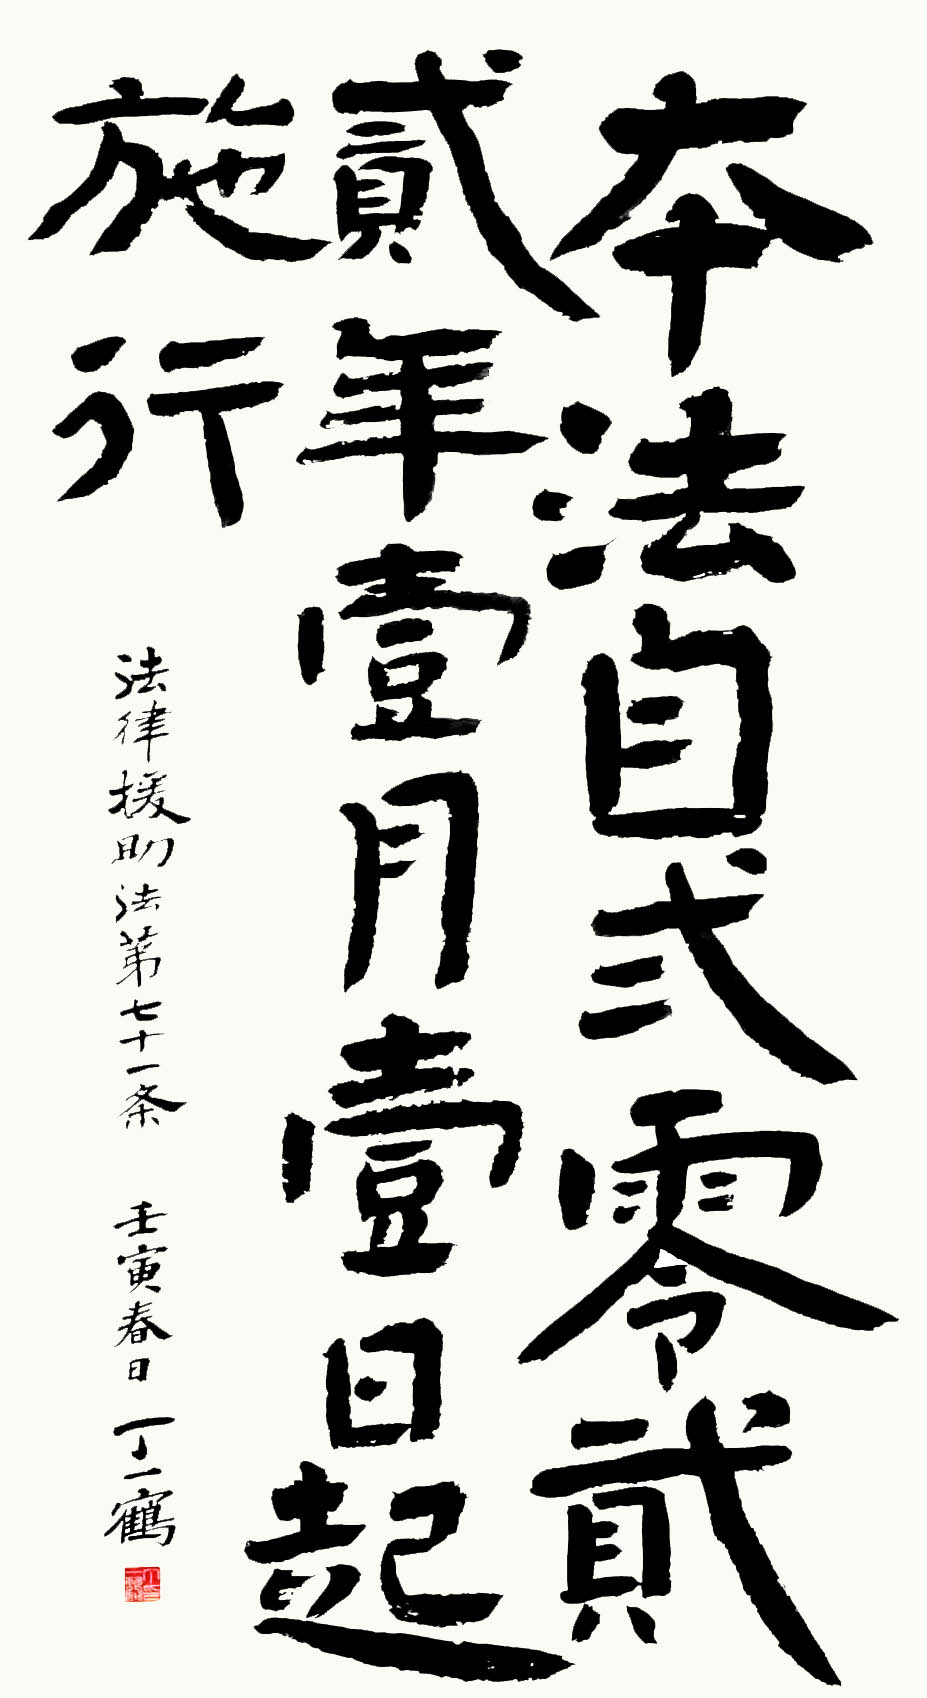 本法自弍零貳
貳年壹月壹日起
施行
法律援助法第七十一条 壬寅春日 丁一鶴